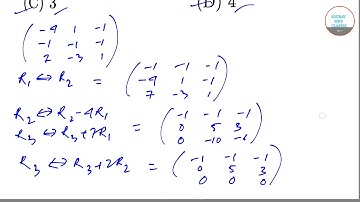 (C) 3 (D) 4
-4 1 -1
-1 -1 -1
7 -3 1
R₁ ↔ R₂ = -1 -1 -1
-4 1 -1
7 -3 1
R₂ ↔ R₂-4R₁
R₃ ↔ R₃+7R₁ = -1 -1 -1
0 5 3
0 -10 -6
R₃ ↔ R₃+2R₂ = -1 -1 -1
0 5 3
0 0 0